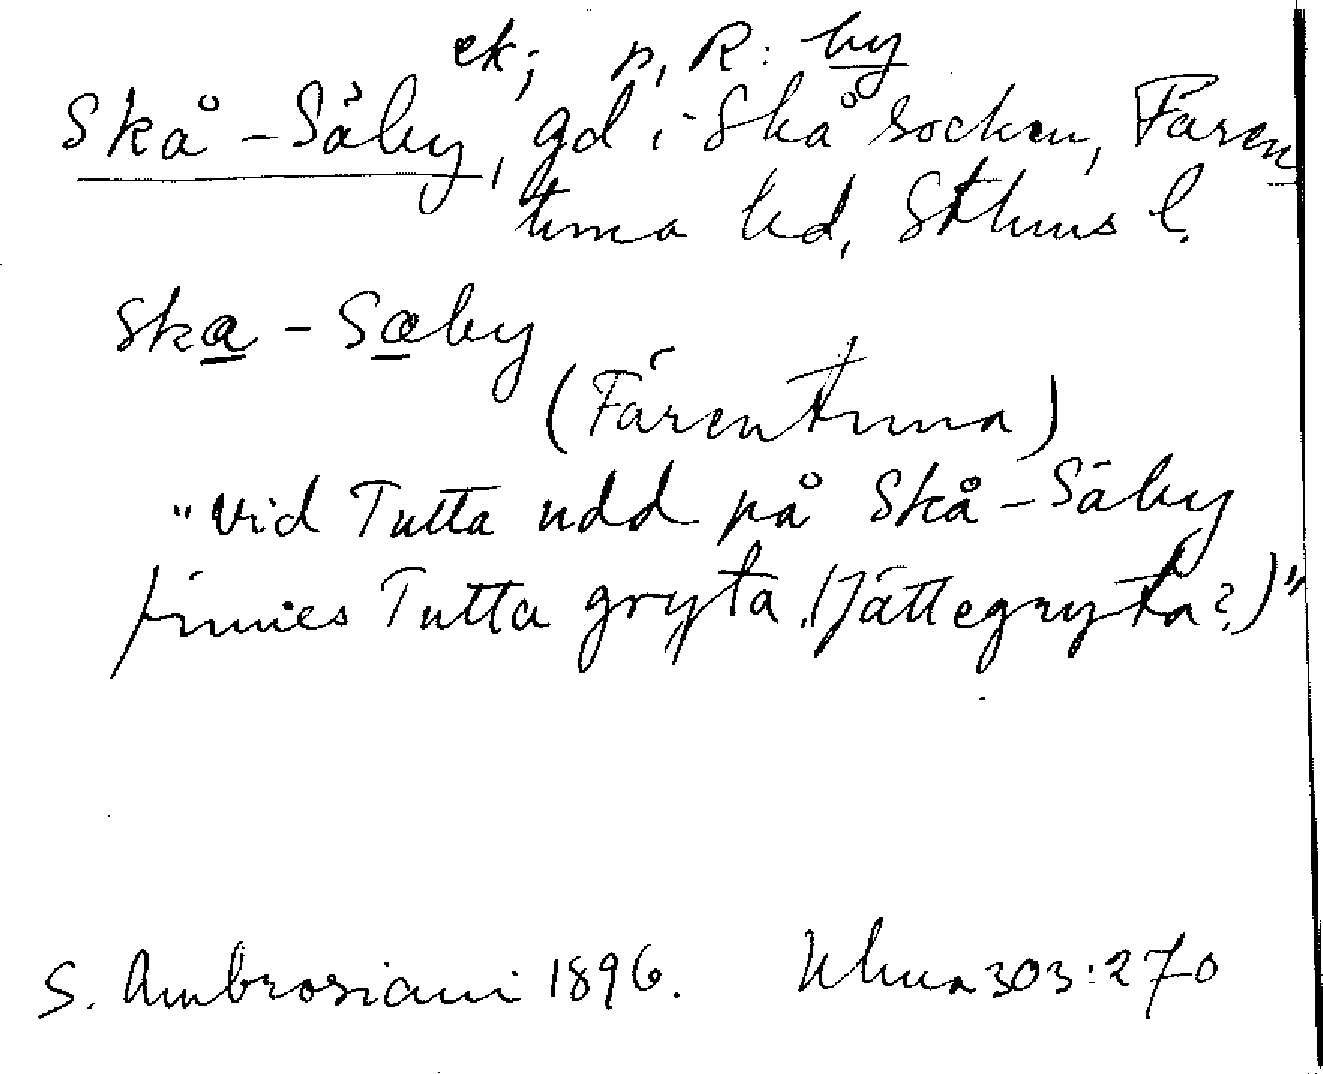 ek; p, R: by
Skå-Säby, gd i Skå socken, Fären
tuna hd, Sthms l.
Ska-Sæby
(Färentuna)
"Vid Tutta udd på Skå-Säby
finnes Tutta gryta (Jättegryta?)"
S. Ambrosiani 1896. 303:270